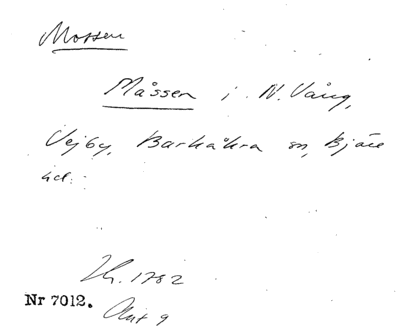 Mossen
Måssen i N. Vång,
Vejby, Barkåkra sn, Bjäre
hd.
Lh. 1782
Nr 7012. Akt 9